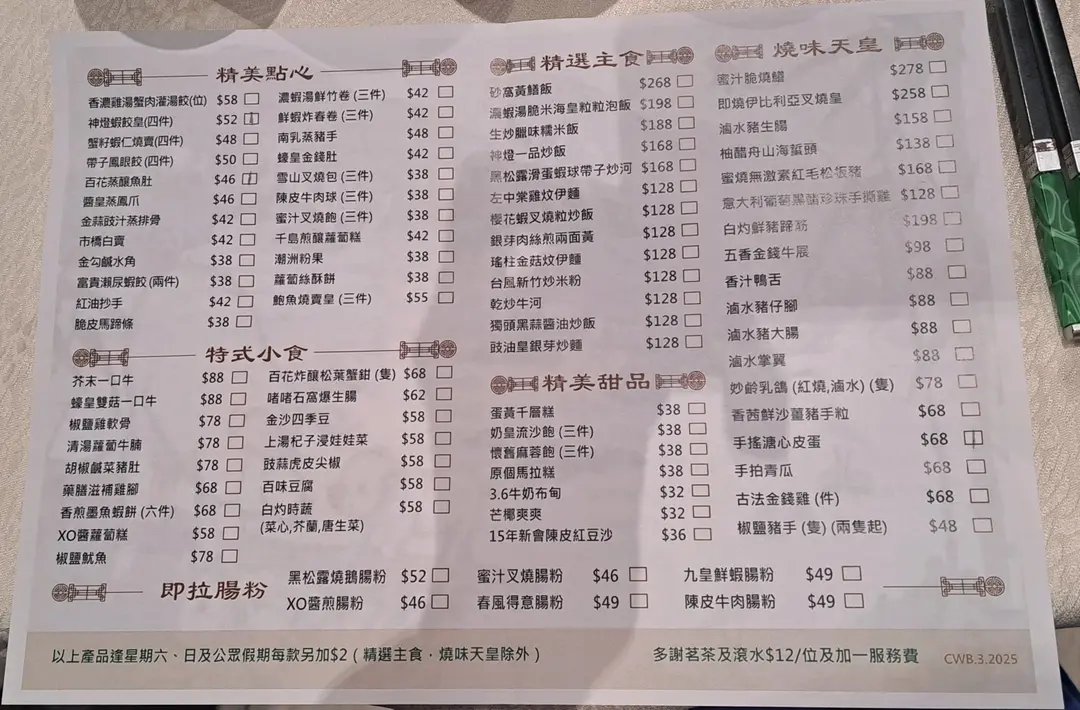 精美點心
香濃雞湯蟹肉灌湯餃(位) $58
神燈蝦餃皇(四件) $52
蟹籽蝦仁燒賣(四件) $48
帶子鳳眼餃(四件) $50
百花蒸釀魚肚 $46
醬皇蒸鳳爪 $46
金蒜豉汁蒸排骨 $42
市橋白賣 $42
金勾鹹水角 $38
富貴瀨尿蝦餃(兩件) $38
紅油抄手 $42
脆皮馬蹄條 $38
濃蝦湯鮮竹卷(三件) $42
鮮蝦炸春卷(三件) $42
南乳蒸豬手 $48
蠔皇金錢肚 $42
雪山叉燒包(三件) $38
陳皮牛肉球(三件) $38
蜜汁叉燒飽(三件) $38
千島煎釀蘿蔔糕 $42
潮洲粉果 $38
蘿蔔絲酥餅 $38
鮑魚燒賣皇(三件) $55
特式小食
芥末一口牛 $88
蠔皇雙菇一口牛 $88
椒鹽雞軟骨 $78
清湯蘿蔔牛腩 $78
胡椒鹹菜豬肚 $78
藥膳滋補雞腳 $68
香煎墨魚蝦餅(六件) $68
XO醬蘿蔔糕 $58
椒鹽魷魚 $78
百花炸釀松葉蟹鉗(隻) $68
啫啫石窩爆生腸 $62
金沙四季豆 $58
上湯杞子浸娃娃菜 $58
豉蒜虎皮尖椒 $58
百味豆腐 $58
白灼時蔬 $58
(菜心,芥蘭,唐生菜)
精選主食
砂窩黃鱔飯 $268
濃蝦湯脆米海皇粒粒泡飯 $198
生炒臘味糯米飯 $188
神燈一品炒飯 $168
黑松露滑蛋蝦球帶子炒河 $168
左中棠雞炆伊麵 $128
櫻花蝦叉燒粒炒飯 $128
銀芽肉絲煎兩面黃 $128
瑤柱金菇炆伊麵 $128
台風新竹炒米粉 $128
乾炒牛河 $128
獨頭黑蒜醬油炒飯 $128
豉油皇銀芽炒麵 $128
精美甜品
蛋黃千層糕 $38
奶皇流沙飽(三件) $38
懷舊麻蓉飽(三件) $38
原個馬拉糕 $38
3.6牛奶布甸 $32
芒椰爽爽 $32
15年新會陳皮紅豆沙 $36
燒味天皇
蜜汁脆燒鱔 $278
即燒伊比利亞叉燒皇 $258
滷水豬生腸 $158
柚醋舟山海蜇頭 $138
蜜燒無激素紅毛松坂豬 $168
意大利葡萄黑醋珍珠手撕雞 $128
白灼鮮豬蹄筋 $198
五香金錢牛展 $98
香汁鴨舌 $88
滷水豬仔腳 $88
滷水豬大腸 $88
滷水掌翼 $88
妙齡乳鴿(紅燒,滷水)(隻) $78
香茜鮮沙薑豬手粒 $68
手搖溏心皮蛋 $68
手拍青瓜 $68
古法金錢雞(件) $68
椒鹽豬手(隻)(兩隻起) $48
即拉腸粉
黑松露燒鵝腸粉 $52
XO醬煎腸粉 $46
蜜汁叉燒腸粉 $46
春風得意腸粉 $49
九皇鮮蝦腸粉 $49
陳皮牛肉腸粉 $49
以上產品逢星期六、日及公眾假期每款另加$2(精選主食．燒味天皇除外)
多謝茗茶及滾水$12/位及加一服務費
CWB.3.2025